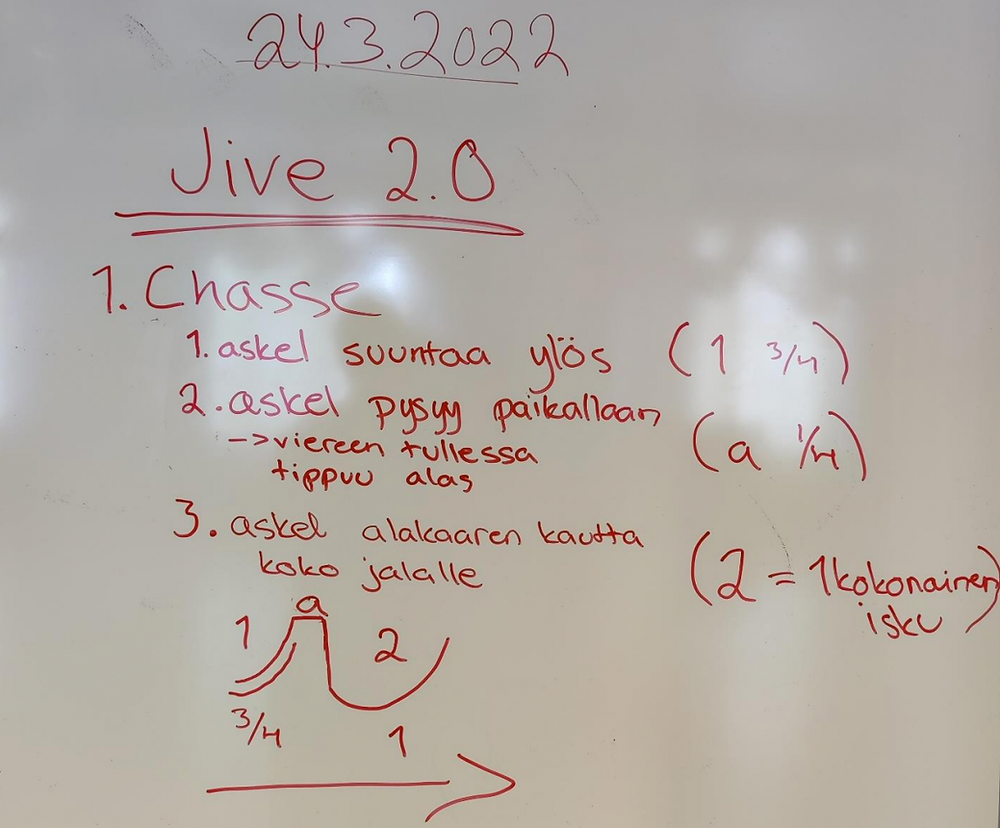 24.3.2022
Jive 2.0
1. Chasse
1. askel suuntaa ylös (1 3/4)
2. askel pysyy paikallaan
(a 1/4)
-> viereen tullessa
tippuu alas
3. askel alakaaren kautta
(2 = 1 kokonainen
koko jalalle
isku)
a
1 2
3/4 1